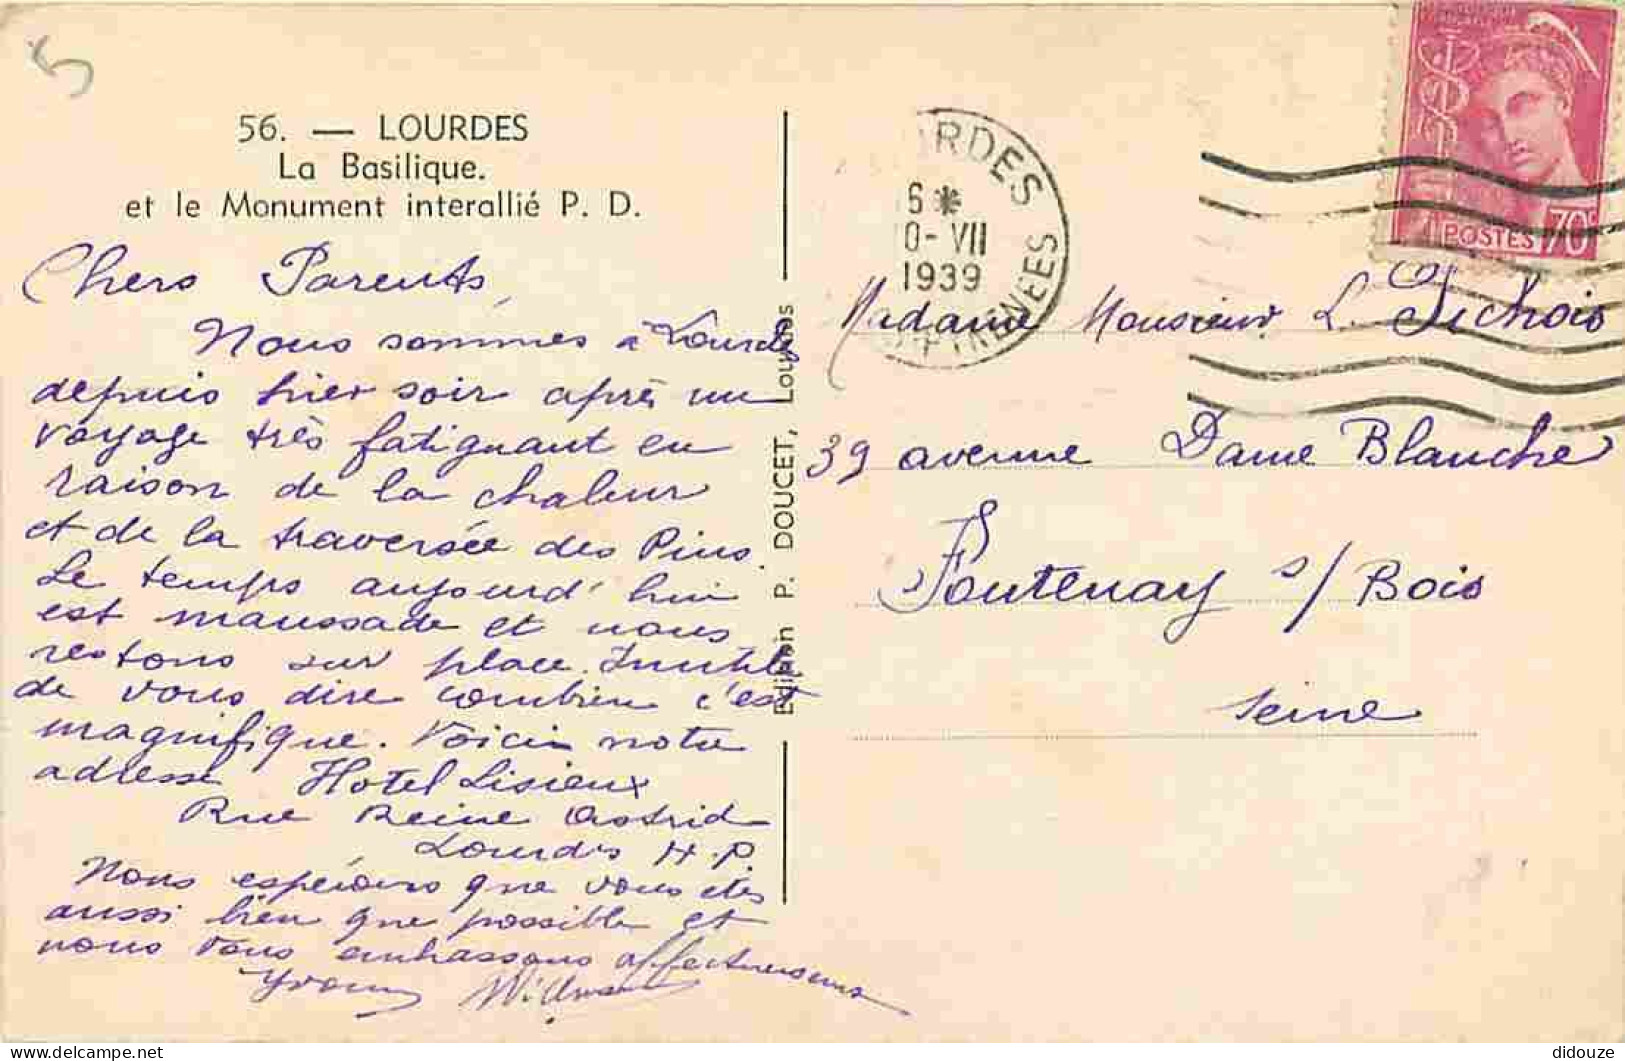 56. — LOURDES
La Basilique.
et le Monument interallié P. D.
Chers Parents,
Nous sommes à Lourdes
depuis hier soir après un
voyage très fatiguant en
raison de la chaleur
et de la traversée des Pins.
Le temps aujourd'hui
est maussade et nous
restons sur place. Inutile
de vous dire combien c'est
magnifique. Voici notre
adresse Hotel Lisieux
Rue Reine Astrid
Lourdes H.P.
Nous espérons que vous êtes
aussi bien que possible et
nous vous embrassons affectueusement
Yvonne
Edition P. DOUCET, Lourdes
RDES
6 *
0-VII
1939
PYRENEES
POSTES 70c
Madame Monsieur L.
39 avenue Dame Blanche
Fontenay s/ Bois
Seine
delcampe.net
didouze